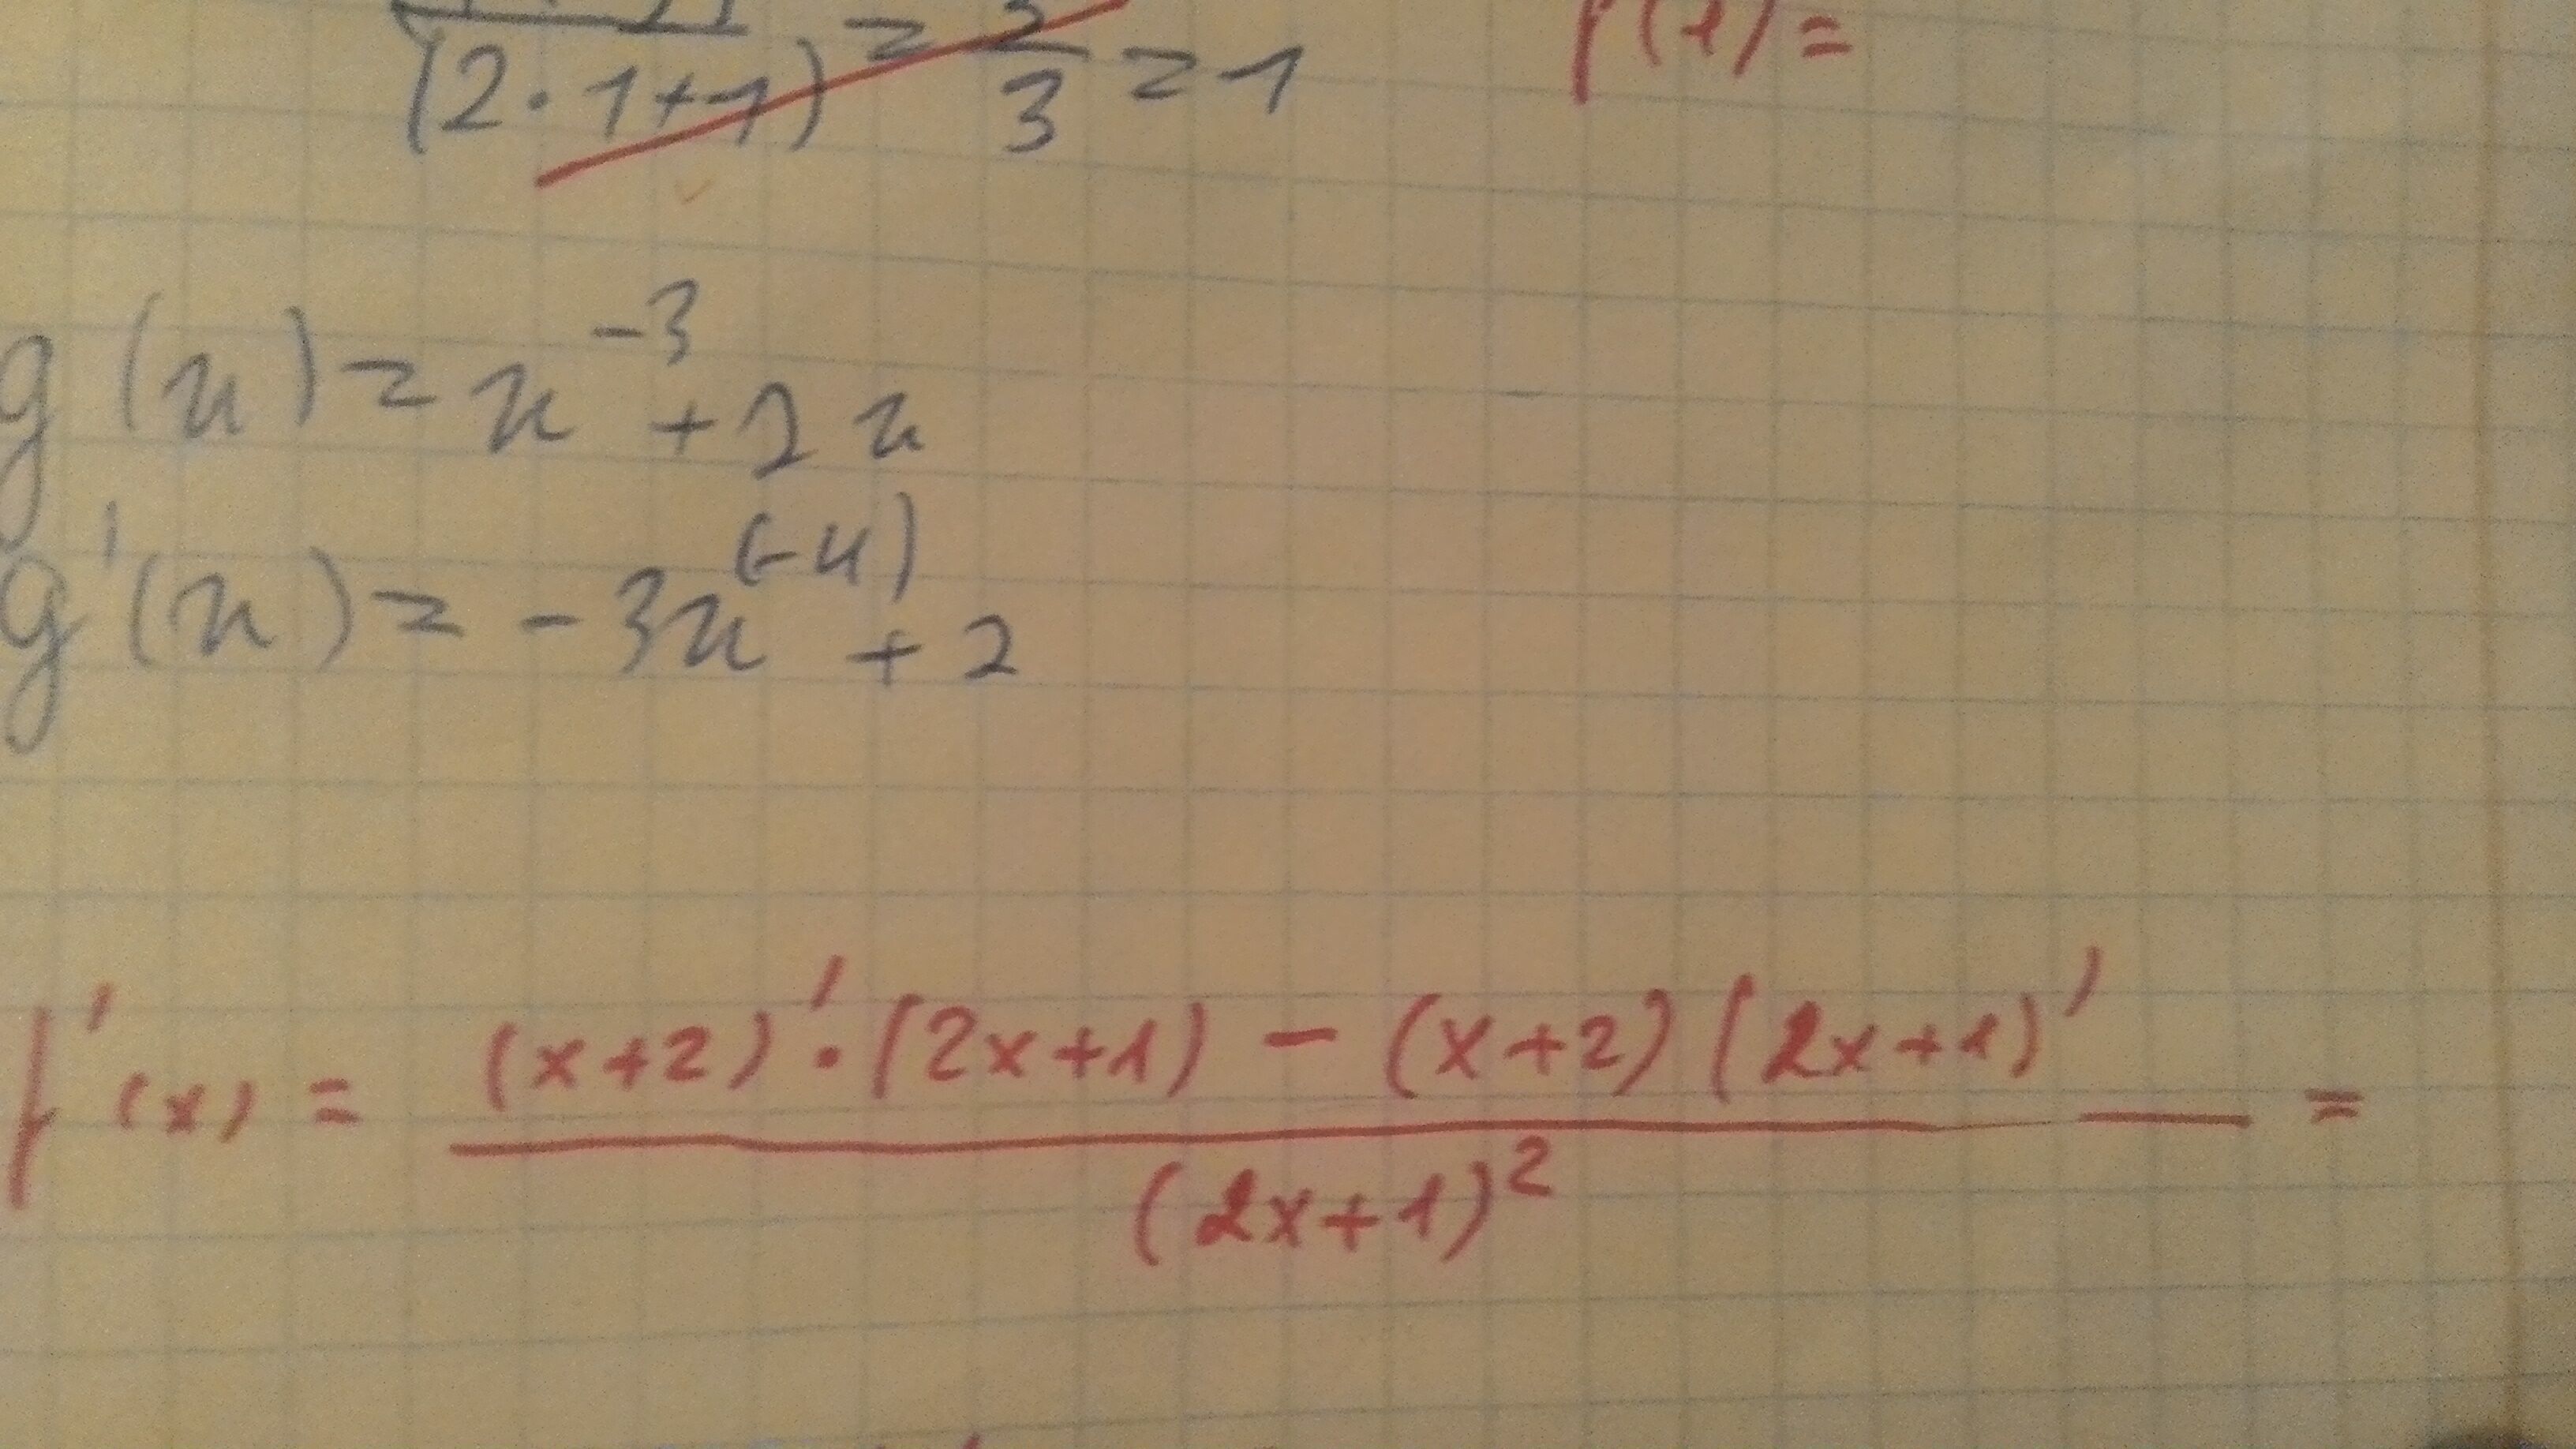 (2·1+1) = 3/3 = 1
f(1) =
g(x) = x^-3 + 2x
g'(x) = -3x^(-4) + 2
f'(x) = (x+2)'·(2x+1) - (x+2)(2x+1)' / (2x+1)^2 =